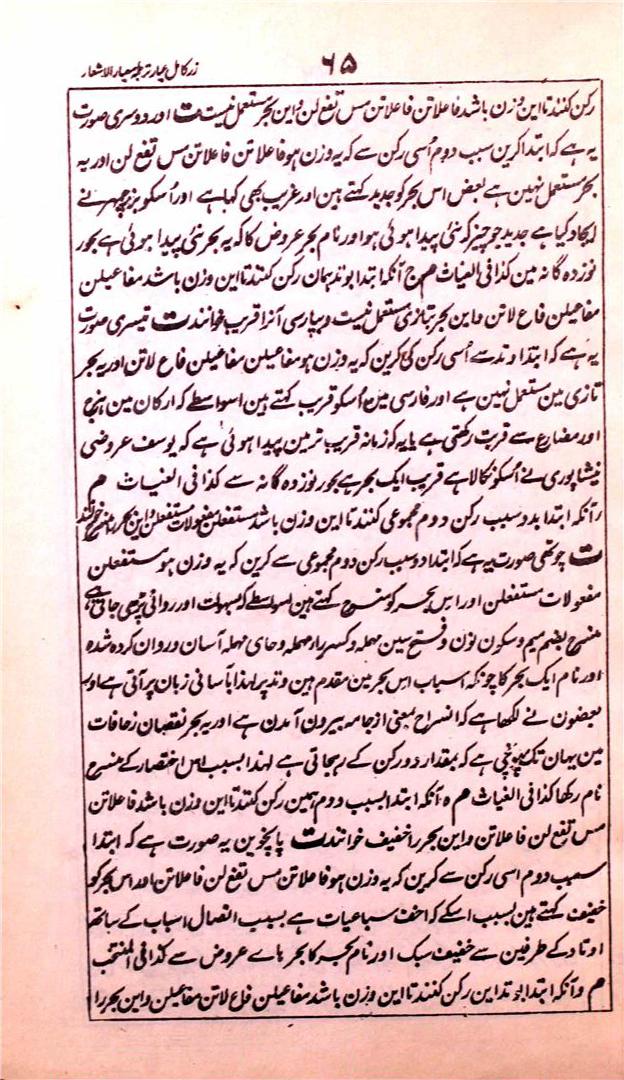 زر کامل عیار ترجمۂ معیار الاشعار
۶۵
رکن کنند تا این وزن باشد فاعلاتن فاعلاتن مس تفع لن و این بحر مستعمل نیست ت اور دوسری صورت
یہ ہے کہ ابتدا کرین سبب دوم اُسی رکن سے کہ یہ وزن ہو فاعلاتن فاعلاتن مس تفع لن اور یہ
بحر مستعمل نہین ہے بعض اس بحر کو جدید کہتے ہین اور غریب بھی کہا ہے اور اُسکو بزرچمہر نے
ایجاد کیا ہے جدید جو چیز کہ نئی پیدا ہوئی ہو اور نام بحر عروض کا کہ یہ بحر نئی پیدا ہوئی ہے بحور
نوزدہ گانہ مین کذا فی الغیاث م ج آنکہ ابتدا بوتد ہمان رکن کنند تا این وزن باشد مفاعیلن
مفاعیلن فاع لاتن و این بحر بتازی مستعمل نیست و بپارسی آنرا قریب خوانند ت تیسری صورت
یہ ہے کہ ابتدا وتد سے اُسی رکن کی کرین کہ یہ وزن ہو مفاعیلن مفاعیلن فاع لاتن اور یہ بحر
تازی مین مستعمل نہین ہے اور فارسی مین اُسکو قریب کہتے ہین اسواسطے کہ ارکان مین ہزج
اور مضارع سے قربت رکھتی ہے یا یہ کہ زمانہ قریب تر مین پیدا ہوئی ہے کہ یوسف عروضی
نیشاپوری نے اُسکو نکالا ہے قریب ایک بحر ہے بحور نوزدہ گانہ سے کذا فی الغیاث م
آنکہ ابتدا بدو سبب رکن دوم مجموعی کنند تا این وزن باشد مستفعلن مفعولات مستفعلن و این بحر را منسرح خوانند
ت چوتھی صورت یہ ہے کہ ابتدا دو سبب رکن دوم مجموعی سے کرین کہ یہ وزن ہو مستفعلن
مفعولات مستفعلن اور اس بحر کو منسرح کہتے ہین اسواسطے کہ سہولت اور روانی پڑھی جاتی ہے
منسرح بضم میم و سکون نون و فتح سین مہملہ و کسر راء مہملہ و حای مہملہ آسان و روان کردہ شدہ
اور نام ایک بحر کا چونکہ اسباب اس بحر مین مقدم ہین وتد پر لہذا بآسانی زبان پر آتی ہے اور
بعضون نے لکھا ہے کہ انسراح بمعنی از جامہ بیرون آمدن ہے اور یہ بحر نقصان زحافات
مین یہان تک پہونچی ہے کہ بمقدار دو رکن کے رہجاتی ہے لہذا بسبب اس اختصار کے منسرح
نام رکھا کذا فی الغیاث م ہ آنکہ ابتدا بسبب دوم ہمین رکن کنند تا این وزن باشد فاعلاتن
مس تفع لن فاعلاتن و این بحر را خفیف خوانند ت پانچوین یہ صورت ہے کہ ابتدا
سبب دوم اسی رکن سے کرین کہ یہ وزن ہو فاعلاتن مس تفع لن فاعلاتن اور اس بحر کو
خفیف کہتے ہین بسبب اسکے کہ اخف سباعیات ہے بسبب اتصال اسباب کے ساتھ
اوتاد کے طرفین سے خفیف سبک اور نام بحر کا بحر ہاے عروض سے کذا فی المنتخب
م و آنکہ ابتدا بوتد این رکن کنند تا این وزن باشد مفاعیلن فاع لاتن مفاعیلن و این بحر را